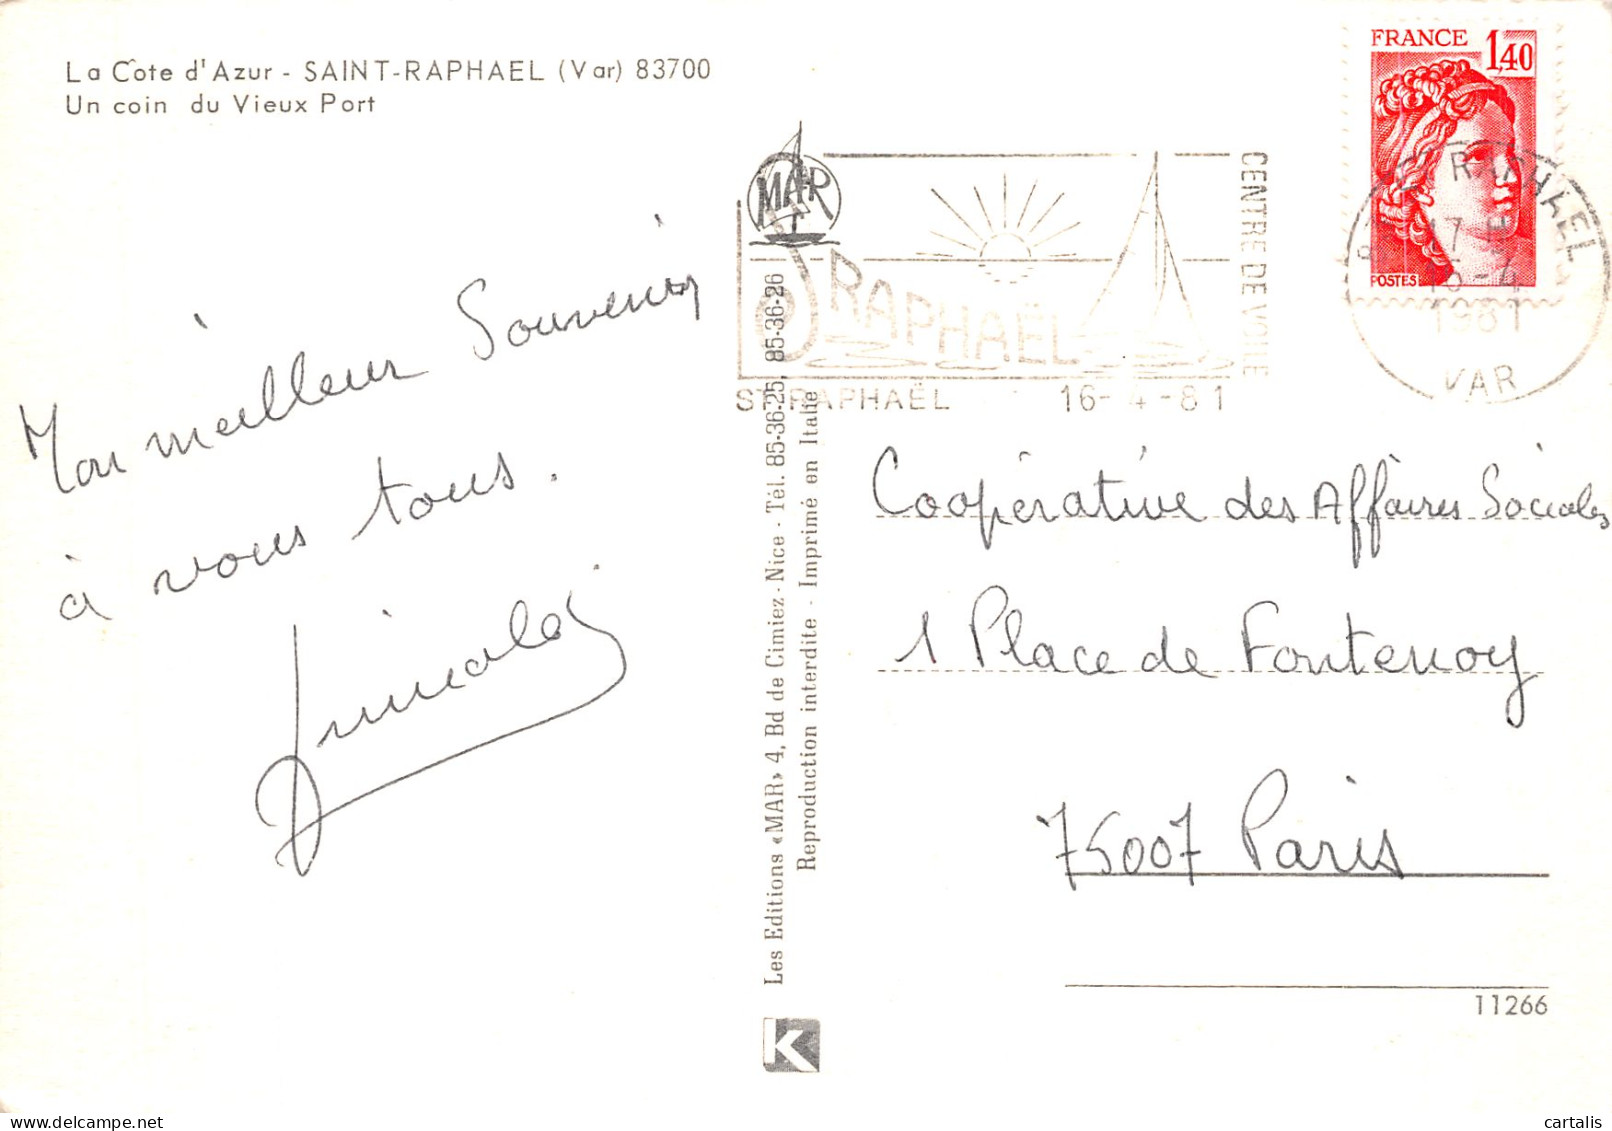 La Cote d'Azur - SAINT-RAPHAEL (Var) 83700
Un coin du Vieux Port
FRANCE 1,40
POSTES
RAPHAEL
1981
VAR
MAR
CENTRE DE VOILE
ST RAPHAËL
ST RAPHAËL 16-4-81
Mon meilleur Souvenir
à vous tous.
Les Editions «MAR» 4, Bd de Cimiez - Nice - Tél. 85-36-25, 85-36-26
Reproduction interdite - Imprimé en Italie
Coopérative des Affaires Sociales
1 Place de Fontenoy
75007 Paris
11266
K
cartalis